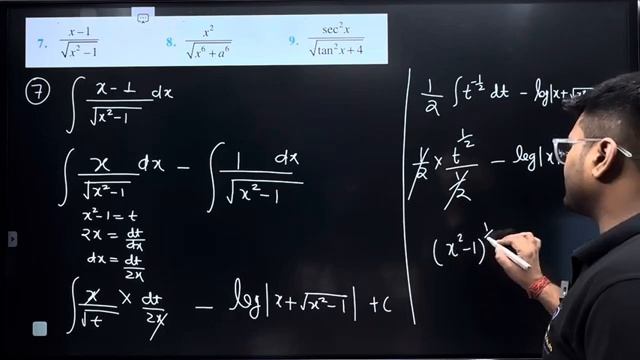 7. x-1 / √(x²-1) 8. x² / √(x⁶+a⁶) 9. sec²x / √(tan²x+4)
⑦ ∫ x-1 / √(x²-1) dx
∫ x / √(x²-1) dx - ∫ 1 dx / √(x²-1)
x²-1 = t
2x = dt/dx
dx = dt/2x
∫ x / √t × dt/2x - log|x+√(x²-1)| + c
1/2 ∫ t^(-1/2) dt - log|x+√
1/2 × t^(1/2) / (1/2) - log|x
(x²-1)